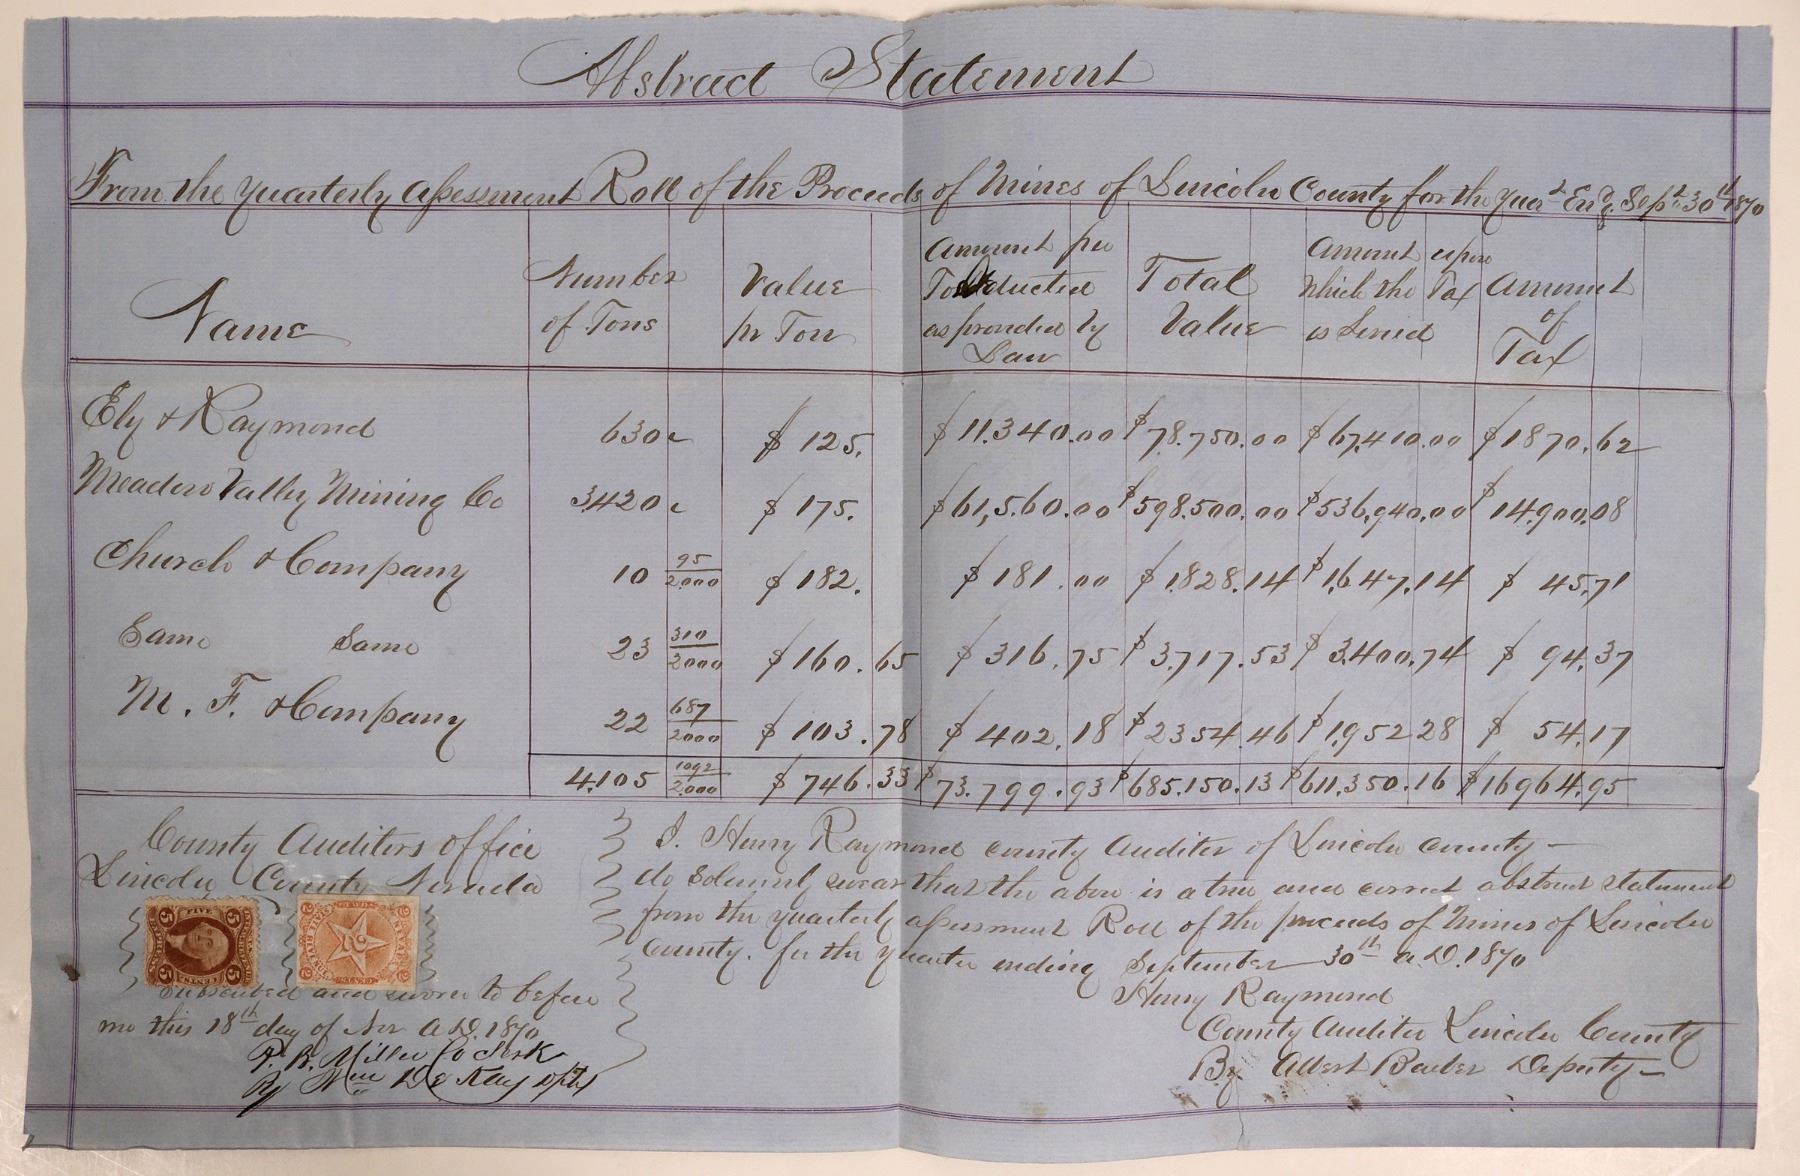 Abstract Statement
From the Quarterly Assessment Roll of the Proceeds of Mines of Lincoln County for the Quar^r End^g Sep^t 30^th 1870
Name
Number of Tons
Value pr Ton
Amount per Ton deducted as provided by Law
Total Value
Amount upon which the Tax is Levied
Amount of Tax
Ely & Raymond 630 $ 125. $ 11.340.00 $78.750.00 $67,410.00 $1870.62
Meadow Valley Mining Co 3.420 $ 175. $61,5.60.00 $598.500.00 $536,940.00 $14.900.08
Church & Company 10 95/2000 $ 182. $ 181.00 $1.828.14 $1,647.14 $ 45.71
Same Same 23 310/2000 $160.65 $ 316.75 $3.717.53 $3.400.74 $ 94.37
M. F. & Company 22 687/2000 $ 103.78 $ 402.18 $2354.46 $1,952 28 $ 54.17
4.105 1092/2.000 $ 746.33 $73.799.93 $685.150.13 $611,350.16 $16964.95
County Auditors office
Lincoln County Nevada
FIVE
5
CENTS
2
CENTS
Subscribed and sworn to before
me this 18^th day of Nov A.D. 1870
P. R. Miller Co Clerk
By Wm De Kay Dpty
I. Henry Raymond county Auditor of Lincoln county —
do Solemnly swear that the above is a true and correct abstract statement
from the quarterly assessment Roll of the proceeds of Mines of Lincoln
County. for the quarter ending September 30^th A.D. 1870
Henry Raymond
County Auditor Lincoln County
By Albert Deputy —